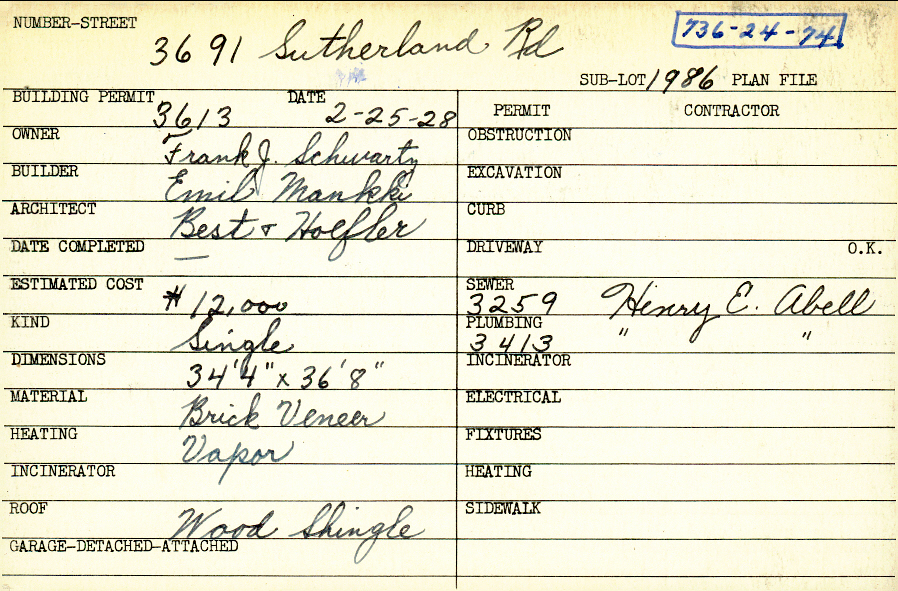 NUMBER-STREET
3691 Sutherland Rd
736-24-74
SUB-LOT 1986 PLAN FILE
BUILDING PERMIT 3613 DATE 2-25-28
PERMIT CONTRACTOR
OWNER Frank J. Schwartz
OBSTRUCTION
BUILDER Emil Mankki
EXCAVATION
ARCHITECT Best & Hoefler
CURB
DATE COMPLETED —
DRIVEWAY O.K.
ESTIMATED COST $12,000
SEWER 3259 Henry E. Abell
KIND Single
PLUMBING 3413 " "
DIMENSIONS 34'4" x 36'8"
INCINERATOR
MATERIAL Brick Veneer
ELECTRICAL
HEATING Vapor
FIXTURES
INCINERATOR
HEATING
ROOF Wood Shingle
SIDEWALK
GARAGE-DETACHED-ATTACHED